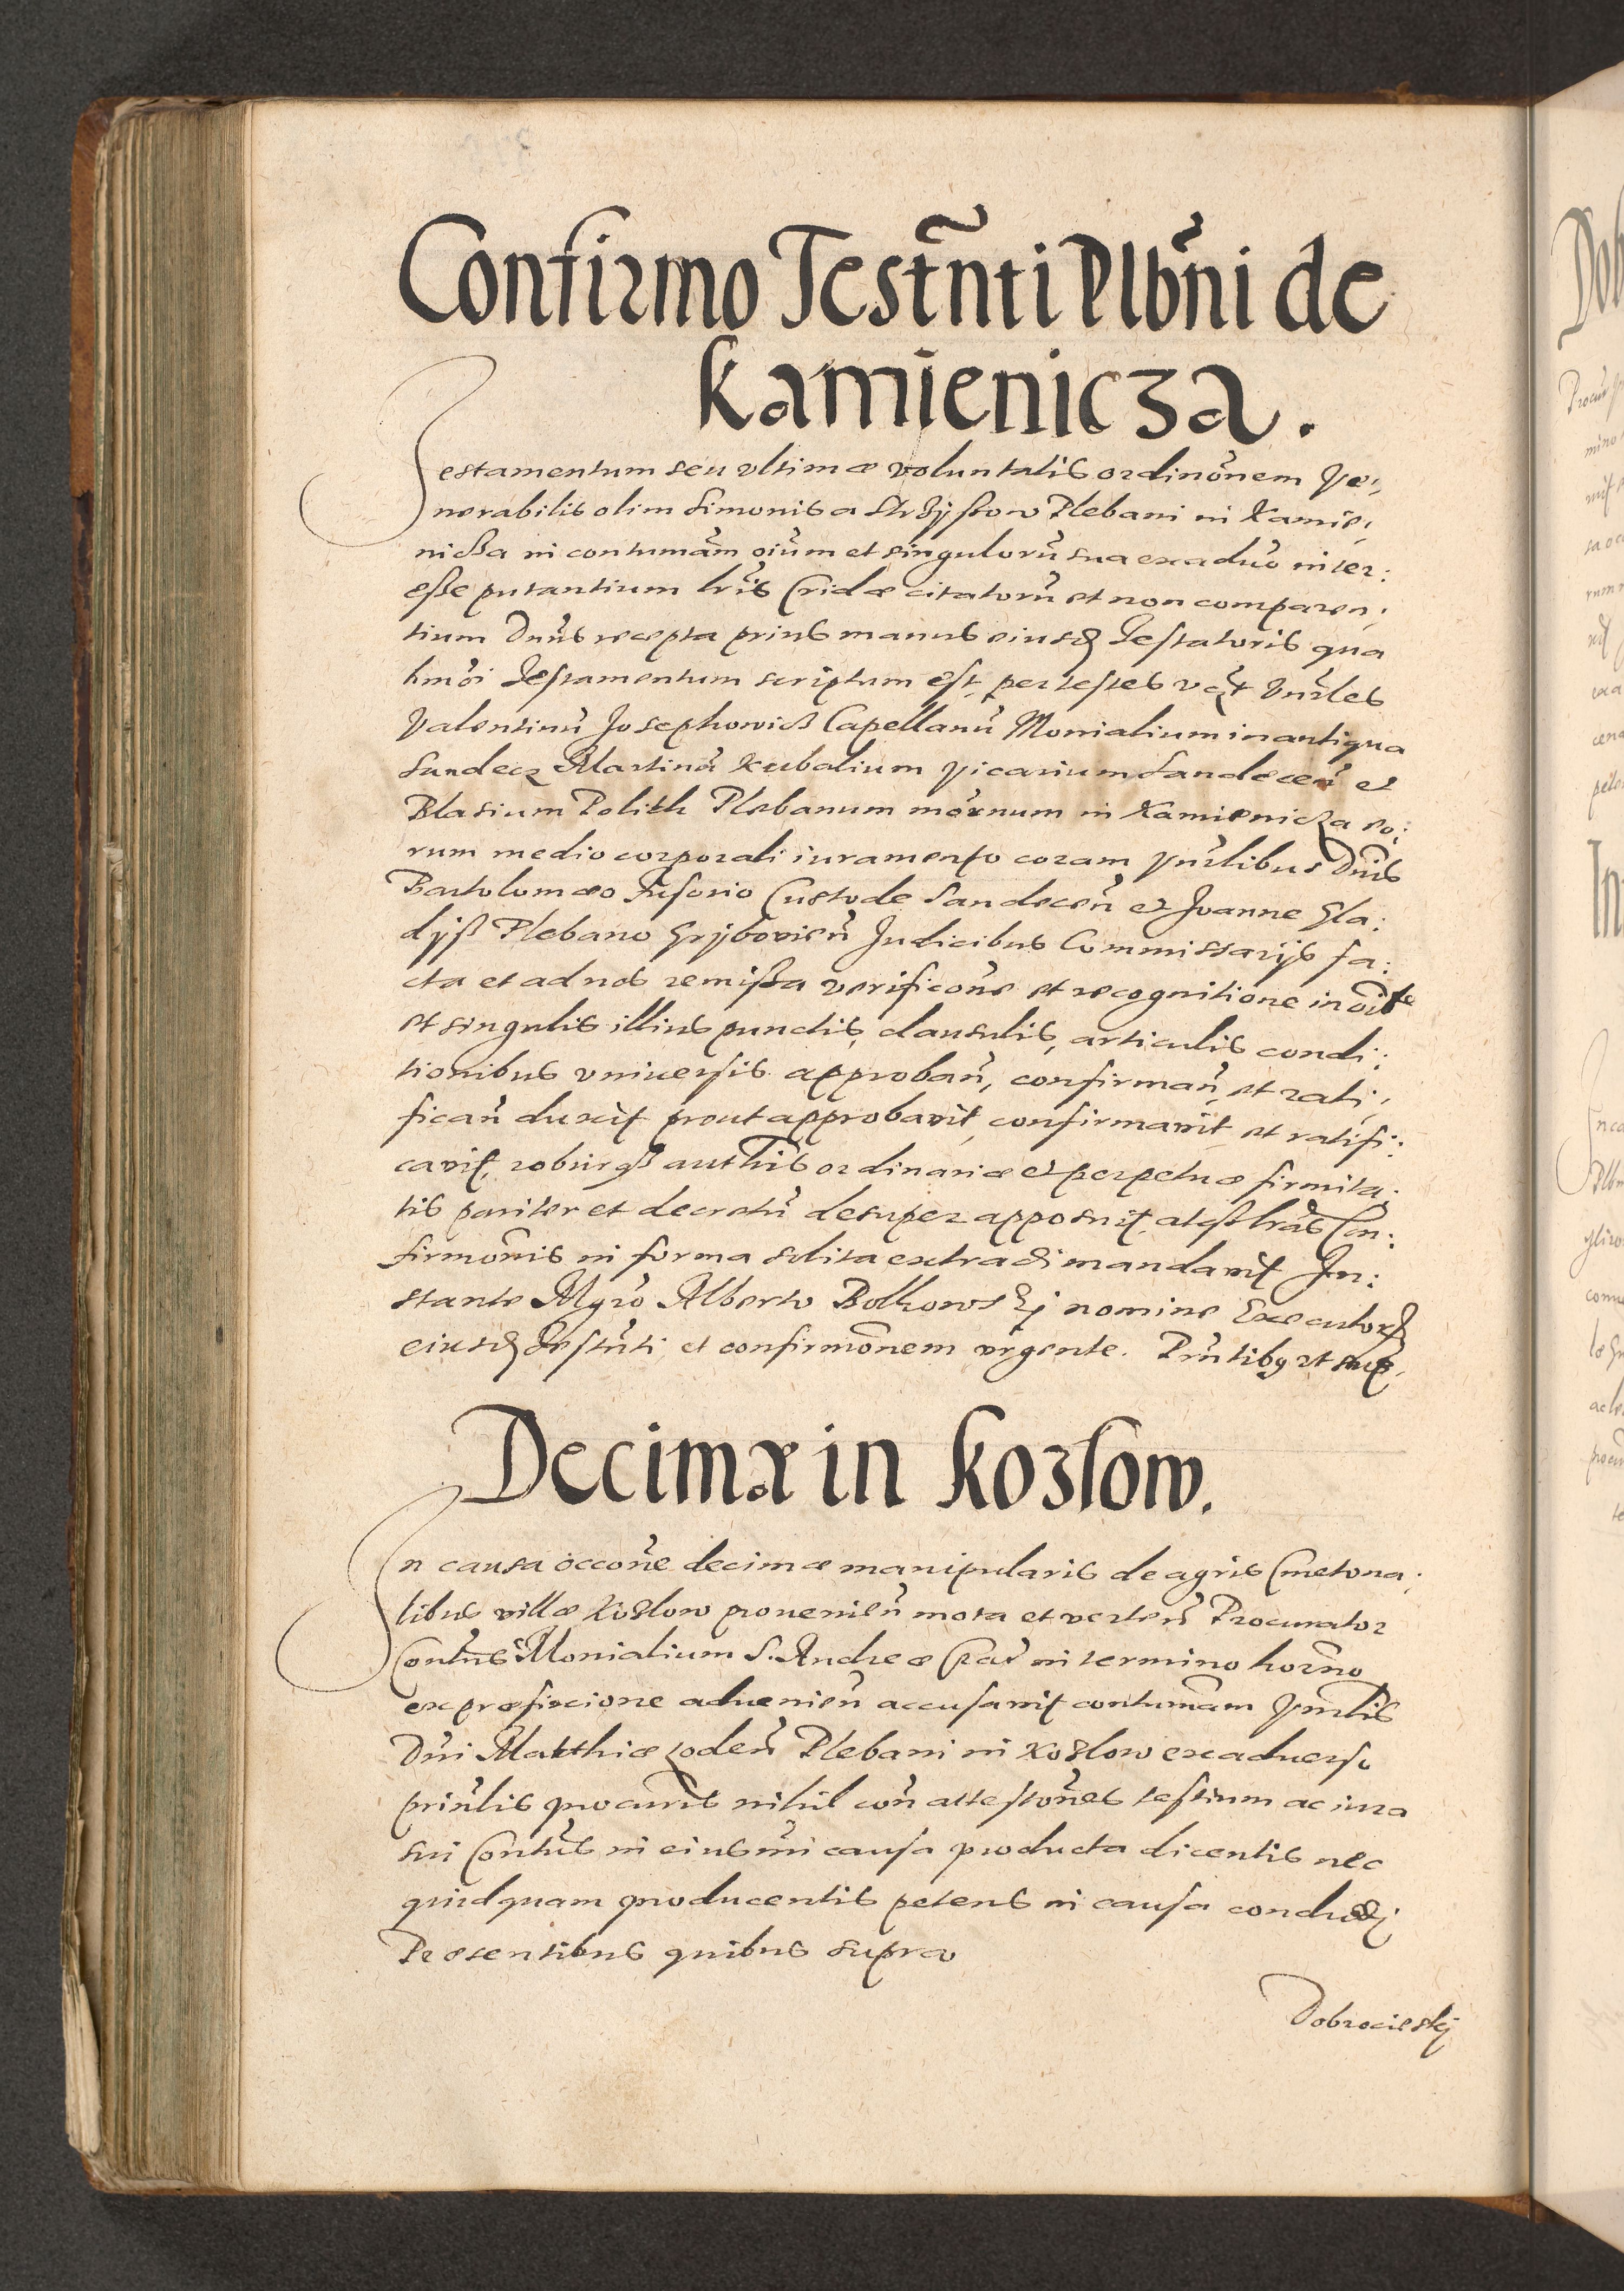 Confirmo Testñti Plbñi de
Kamienicza.
Testamentum seu vltimæ voluntatis ordinõnem Ve:
nerabilis olim Simonis a Plebani in Kamie,
nicza in contumãm oiũm et singulorũ sua exaduo inter:
esse putantium lrĩs Cridæ citatorũ et non comparen,
tium Dnũs recepta prius manus eiusdẽ Testatoris qua
hmõi Testamentum scriptum est, per testes Vnrles
Valentinũ Josephowicz Capellanũ Monialium in antiqua
Sandecz Martinũ Kubalium Vicarium Sandeceñ et
Blasium Polith Plebanum modernum in Kamienicza eo:
rum medio corporali iuramento coram Vnrlibus Dnĩs
Bartolomæo Fusorio Custode Sandeceñ et Joanne Gla:
dysz Plebano Grybovieñ Judicibus Commissarijs fa:
cta et ad nos remissa verificõne et recognitione in oĩb
et singulis illius punctis, clausulis, articulis condi:
tionibus vniuersis approbañ, confirmañ, et rati,
ficañ duxit prout approbavit, confirmavit et ratifi:
cavit, roburq authtis ordinariæ et perpetuæ firmita:
tis pariter et decretũ desuper apposuit, atq lrãs Con:
firmõnis in forma solita extradi mandavit In:
stante Mgro Alberto nomine Executorũ
eiusdẽ Testñti et confirmõnem vrgente. Pñtibq vt sup.
Decimæ in Kozlow.
In causa occõne decimæ manipularis de agris Cmetona:
libus villæ Kozlow proueniẽn mota et verteñ Procurator
Conũtus Monialium S. Andreæ Craĩ in termino horno
ex præfixcione adueniẽn accusavit contumãm Vnrlis
Dñi Matthiæ Plebani in Kozlow ex aduerso
prinlis nihil coñ attestõnes testium ac iura
sui Conũtus in eiusmõi causa producta dicentis nec
quidquam producentis petens in causa concludj
Præsentibus quibus supra
Dobrocieskj